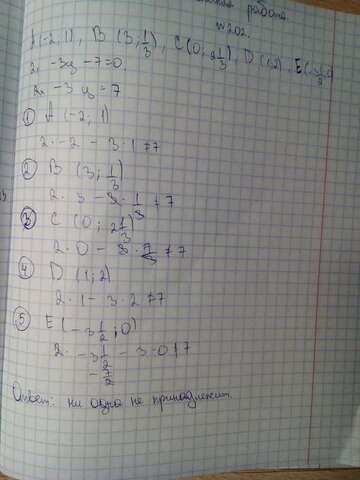 работа.
№ 202.
A (-2; 1), B (3; 1/3), C (0; 2 1/3), D (1; 2), E (-3 1/2
-3y - 7 = 0.
- 3y = 7
① A (-2; 1)
2 · -2 - 3 · 1 ≠ 7
② B (3; 1/3)
2 · 3 - 3 · 1/3 ≠ 7
③ C (0; 2 1/3)
2 · 0 - 3 · 7/3 ≠ 7
④ D (1; 2)
2 · 1 - 3 · 2 ≠ 7
⑤ E (-3 1/2; 0)
2 · -3 1/2 - 3 · 0 ≠ 7
-7/2
Ответ: ни одна не принадлежит.